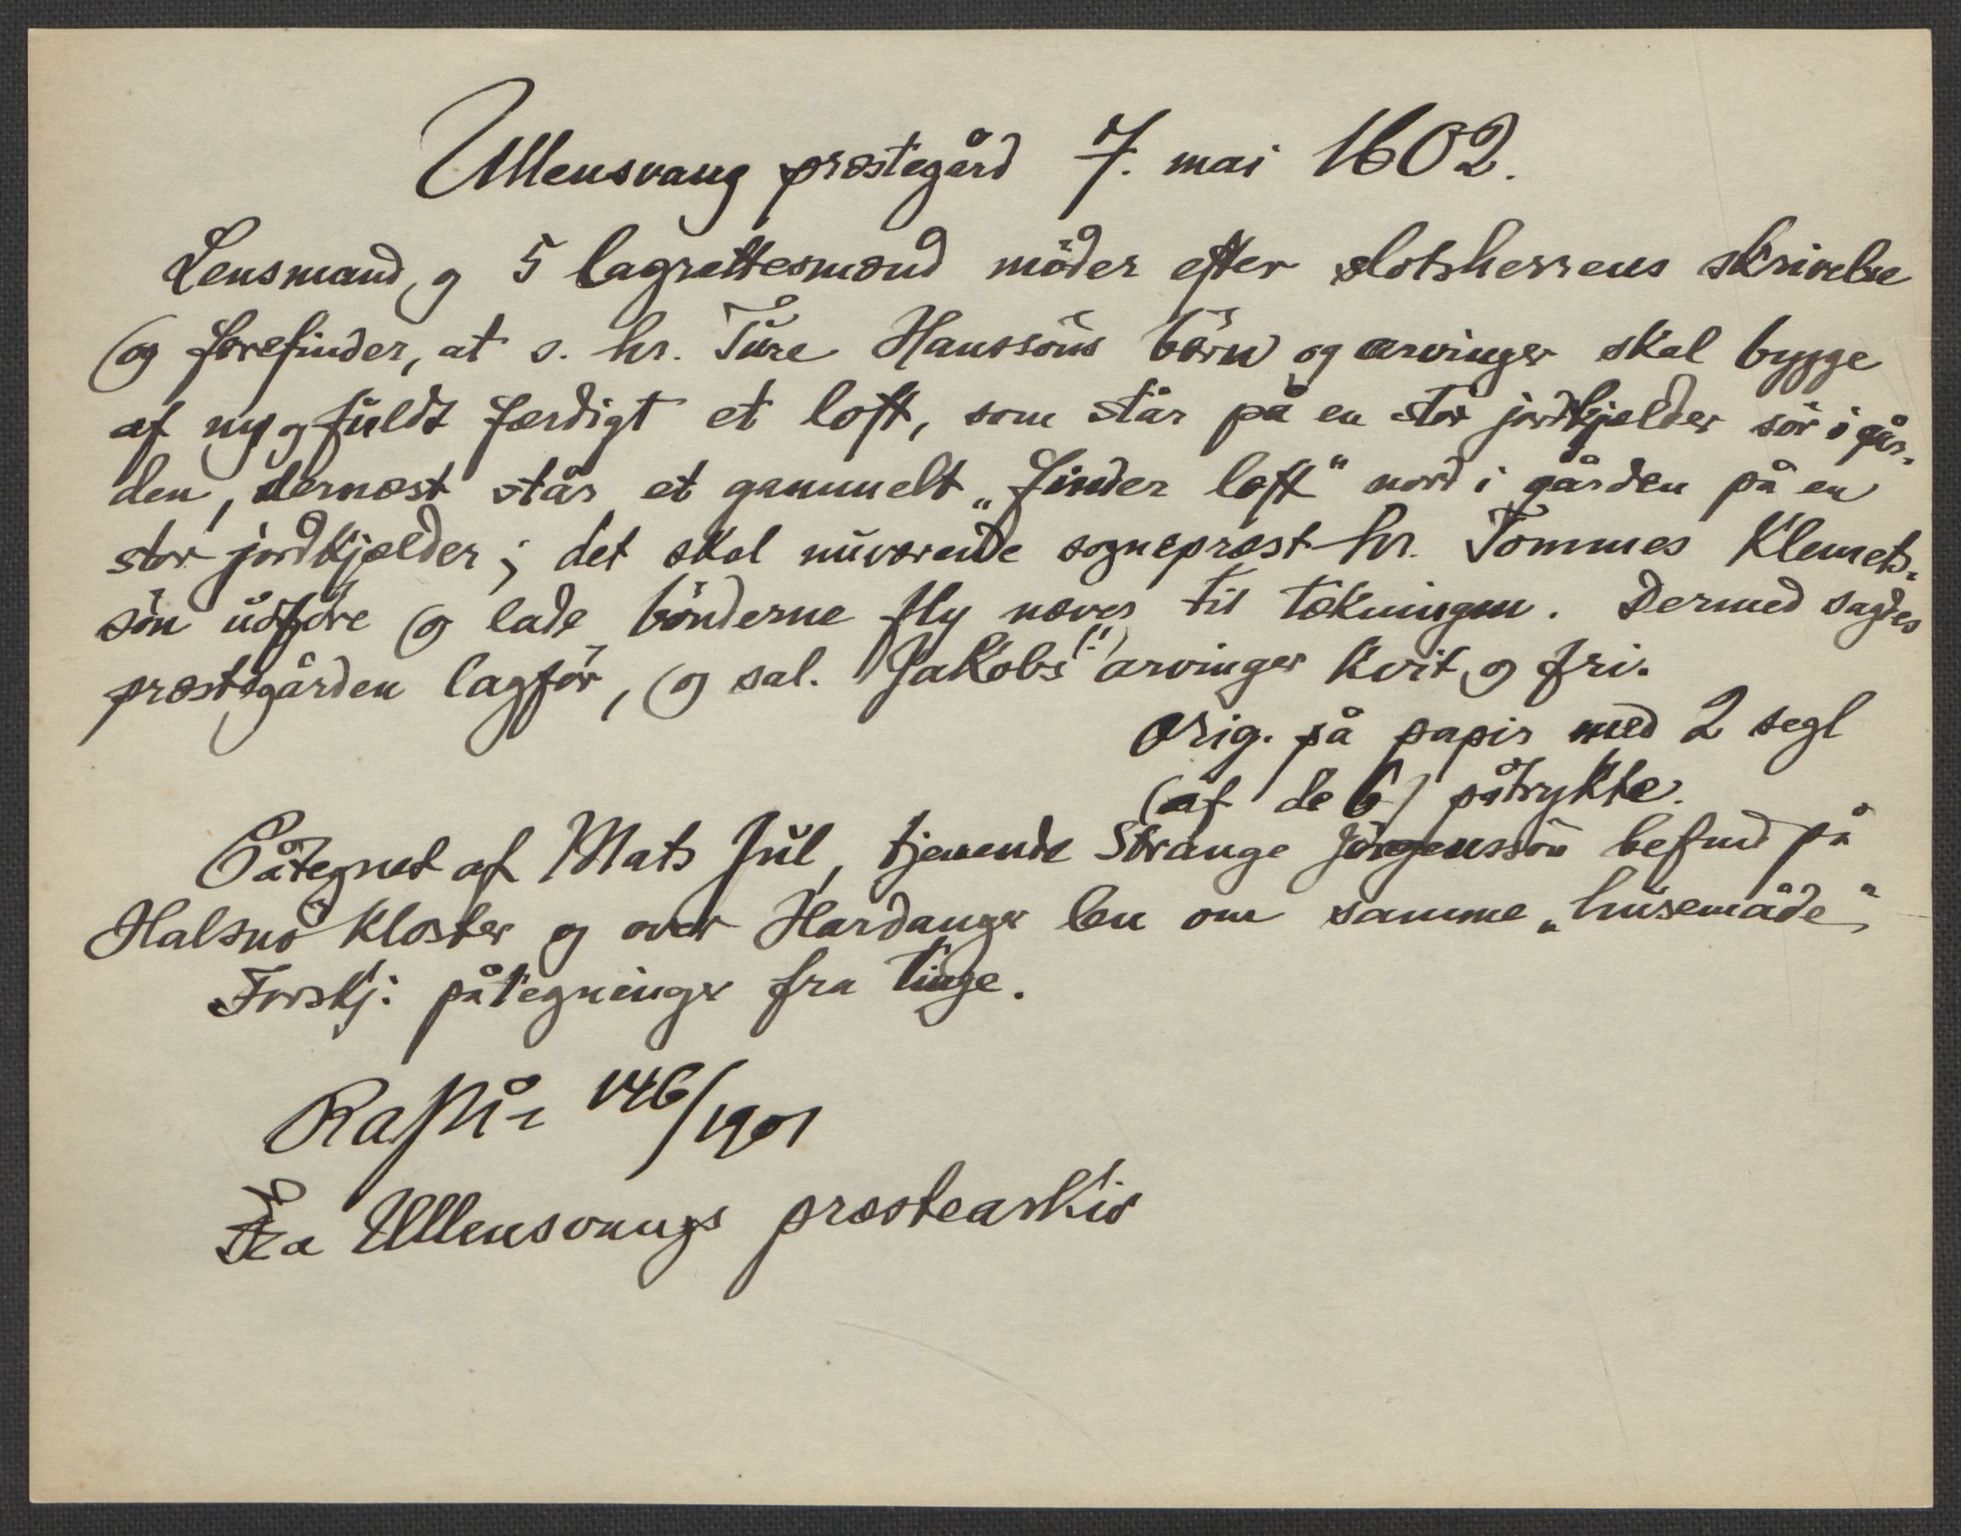 Ullensvang præstegård 7. mai 1602.
Lensmand og 5 lagrettesmænd möder efter slotsherrens skrivelse
og forefinder, at s. hr. Ture Hanssöns börn og arvinger skal bygge
af ny og fuldt færdigt et loft, som står på en stor jordkjælder sör i går-
den, dernæst står et gammelt „finder loft" nord i gården på en
stor jordkjælder; det skal nuværende sognepræst hr. Tommes Klemets-
sön udföre og lade bönderne fly næver til tækningen. Dermed sagdes
præstegården lagför, og sal. Jakobs (!) arvinger kvit og fri.
Orig. på papir med 2 segl
(af de 6) påtrykte.
Påtegnet af Mats Jul, tjenende Strange Jörgenssön befmd på
Halsnö kloster og over Hardanger len om samme „husemåde"
Forskj: påtegninger fra tinge.
RaPk 146/1901
Fra Ullensvangs præstearkiv